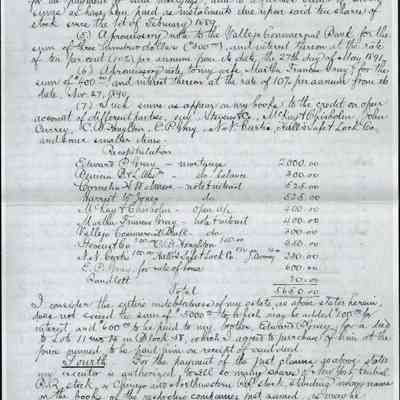 sums as have been paid as instalments due upon said ten shares of
stock since the 1st of February 1889.
(5) A promissory note to the Vallejo Commercial Bank for the
sum of three hundred dollars ($300 00), and interest thereon at the rate
of ten per cent (10%) per annum from its date, the 27th day of May 1890
(6) A promissory note to my wife, Martha Frances Gray, for the
sum of $400 and interest thereon at the rate of 10% per annum from its
date, Nov. 27, 1890.
(7) Such sums as appear on my books to the credit on open
account of different parties, viz: Stevens & Co., McKay & Chisholm, John
Currey, C. B. Houghton, E. P. Gray, N. N. Curtis, Hall's Safe & Lock Co.,
and some smaller items.
Recapitulation
Edward P. Gray - mortgage 2000.00
Benicia B & L Assn - do balance 300.00
Cornelia - note & interest 525.00
Harriet W. Jones do 525.00
McKay & Chisholm - Open a/c 400.00
Martha Frances Gray - note & interest
Vallejo Commercial Bank - do 300.00
Stevens & Co C. B. Houghton
N. N. Curtis Hall's Safe & Lock Co
E. P. Gray, for sale of house 600.00
Total 5650.00
I consider the entire indebtedness of my estate, as above stated herein,
does not exceed the sum of $5000 to which may be added 700 00 for
interest, and $600 00 to be paid to my brother, Edward P. Gray, for a deed
to Lots 11 and in Block 18, which I agreed to purchase of him at the
price named, to be paid him on receipt of said deed.
Fourth For the payment of the just claims as above stated
my executor is authorized, to sell so many shares of New York Central
R.R. stock, or Chicago and Northwestern R.R. stock, standing in my name
on the books of the respective companies last named, as may be